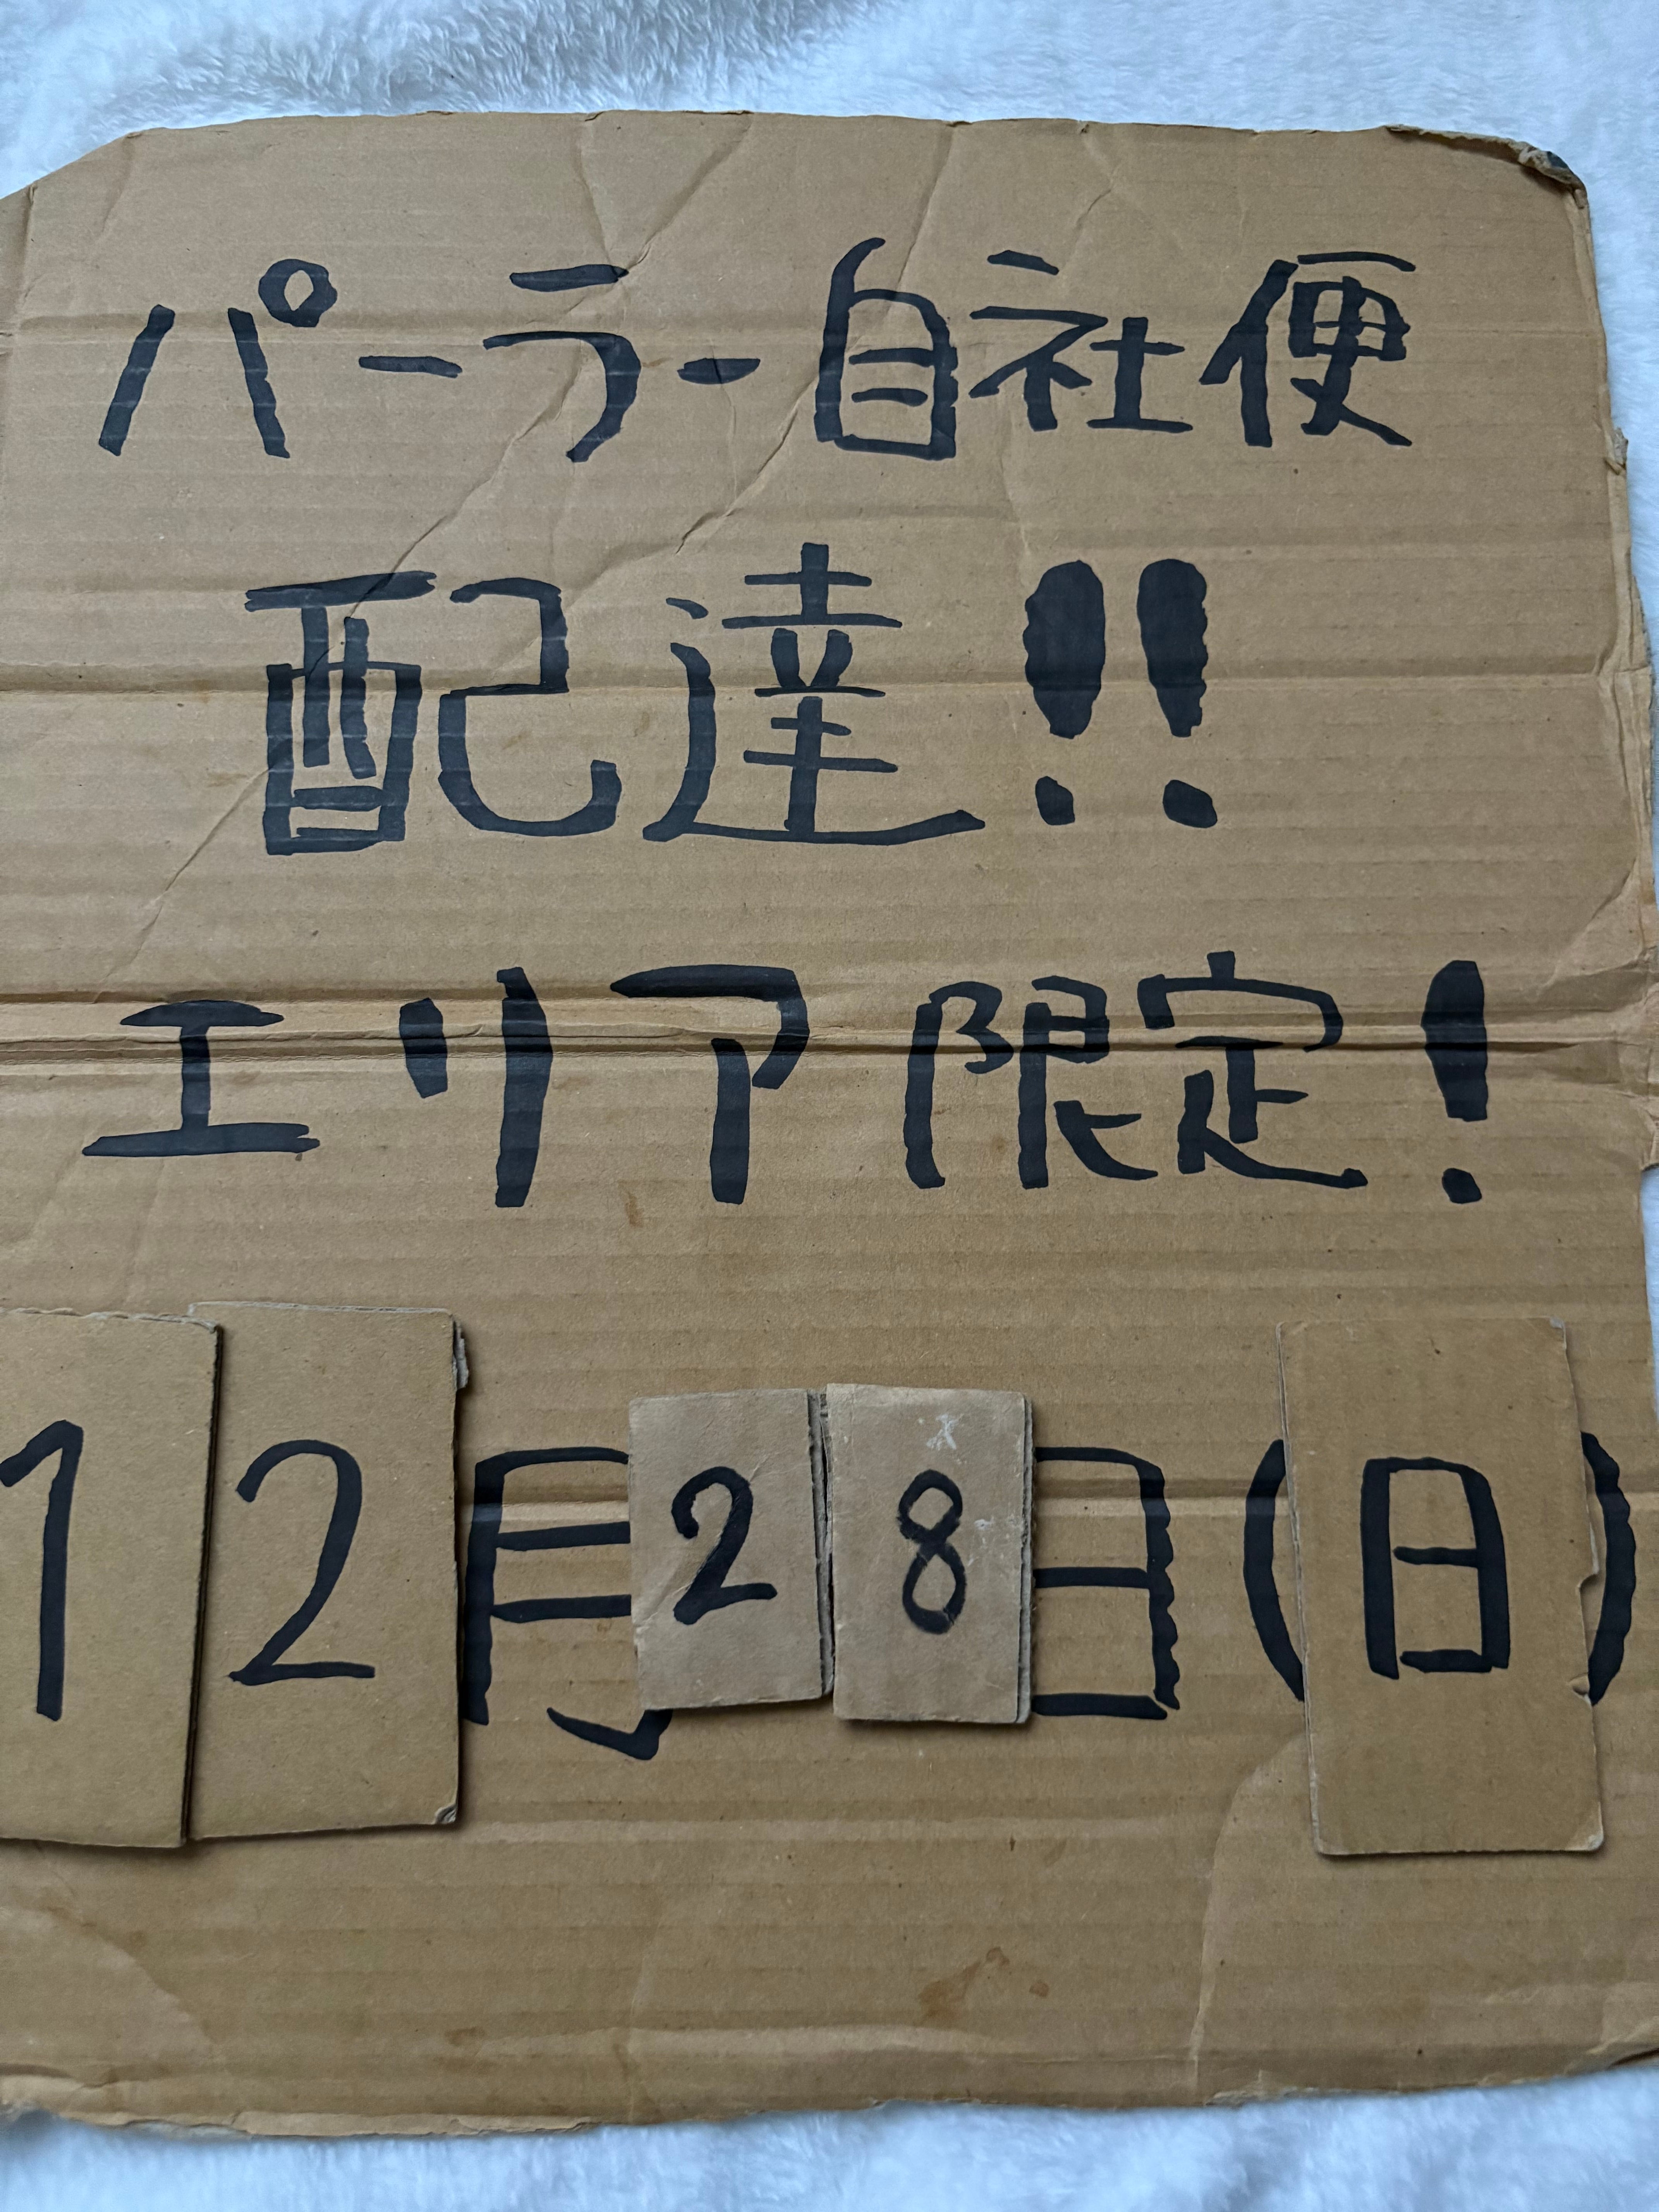 パーラー自社便
配達!!
エリア限定!
12月28日(日)